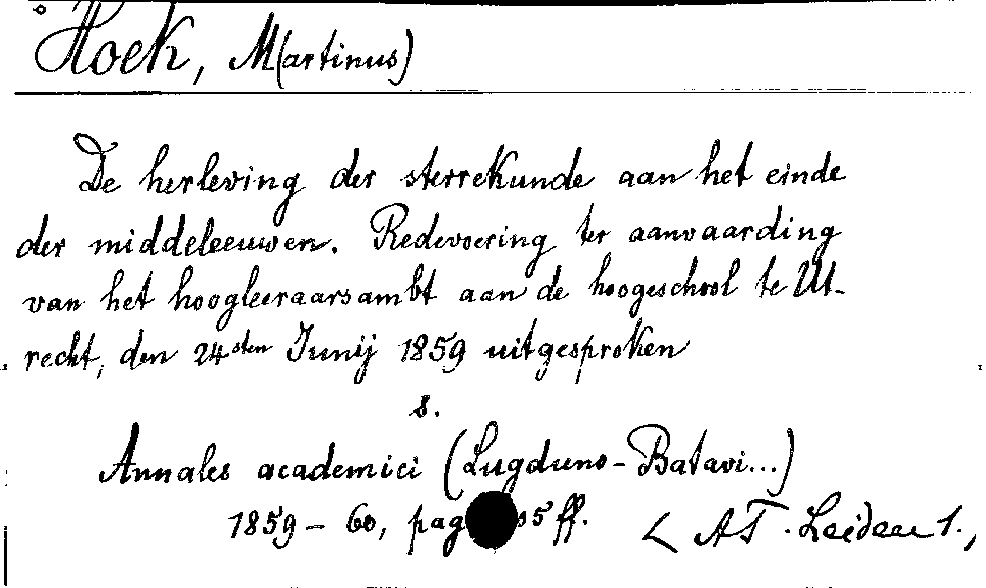 Hoek, M(artinus)
De herleving der sterrekunde aan het einde
der middeleeuwen. Redevoering ter aanvaarding
van het hoogleeraarsambt aan de hoogeschool te Ut-
recht, den 24sten Junij 1859 uitgesproken
s.
Annales academici (Lugduno-Batavi...)
1859 - 60, pag 05 ff. < AT. Leiden 1.,